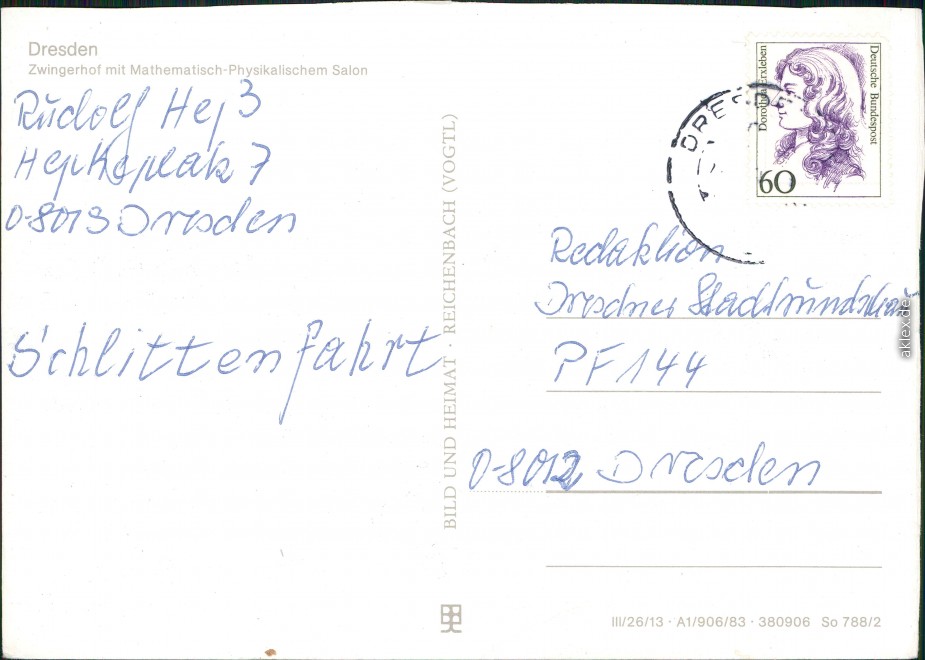 Dresden
Zwingerhof mit Mathematisch-Physikalischem Salon
Rudolf Heß
Hepkeplatz 7
O-8013 Dresden
Schlittenfahrt
BILD UND HEIMAT · REICHENBACH (VOGTL)
Dorothea Erxleben
Deutsche Bundespost
60
DRES
Redaktion
Dresdner Stadtrundschau
PF 144
O-8012 Dresden
III/26/13 · A1/906/83 · 380906 So 788/2
aklex.de